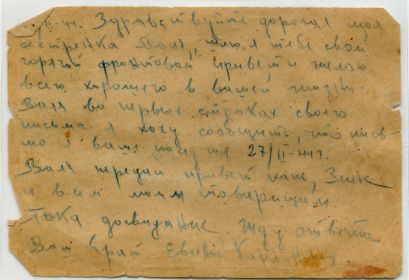 Здравствуйте дорогая моя
сестренка Валя, шлю я тебе свой
горячий фронтовой привет и желаю
всего хорошего в вашей жизни
Валя во первых строках своего
письма я хочу сообщить, что пись-
мо я ваше получил 27/II-44г.
Валя передай привет маме, Зине
и всем моим товарищам.
Пока досвидание жду ответа
Ваш брат Евгений